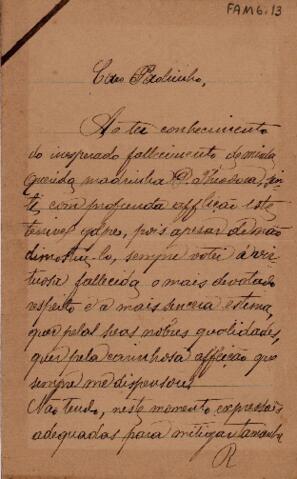 FAM6.13
Caro Padrinho,
Ao ter conhecimento
do inesperado fallecimento de minha
querida madrinha D. Theodora, sin-
ti, com profunda afflicção este
terrivel golpe, pois apesar de não
dimostra-lo, sempre votei á vir-
tuosa fallecida o mais devotado
respeito e a mais sincera estima,
quer pelas suas nobres qualidades,
quer pela carinhosa affeição que
sempre me dispensou.
Não tendo, neste momento expressões
adequadas para mitigar tamanha